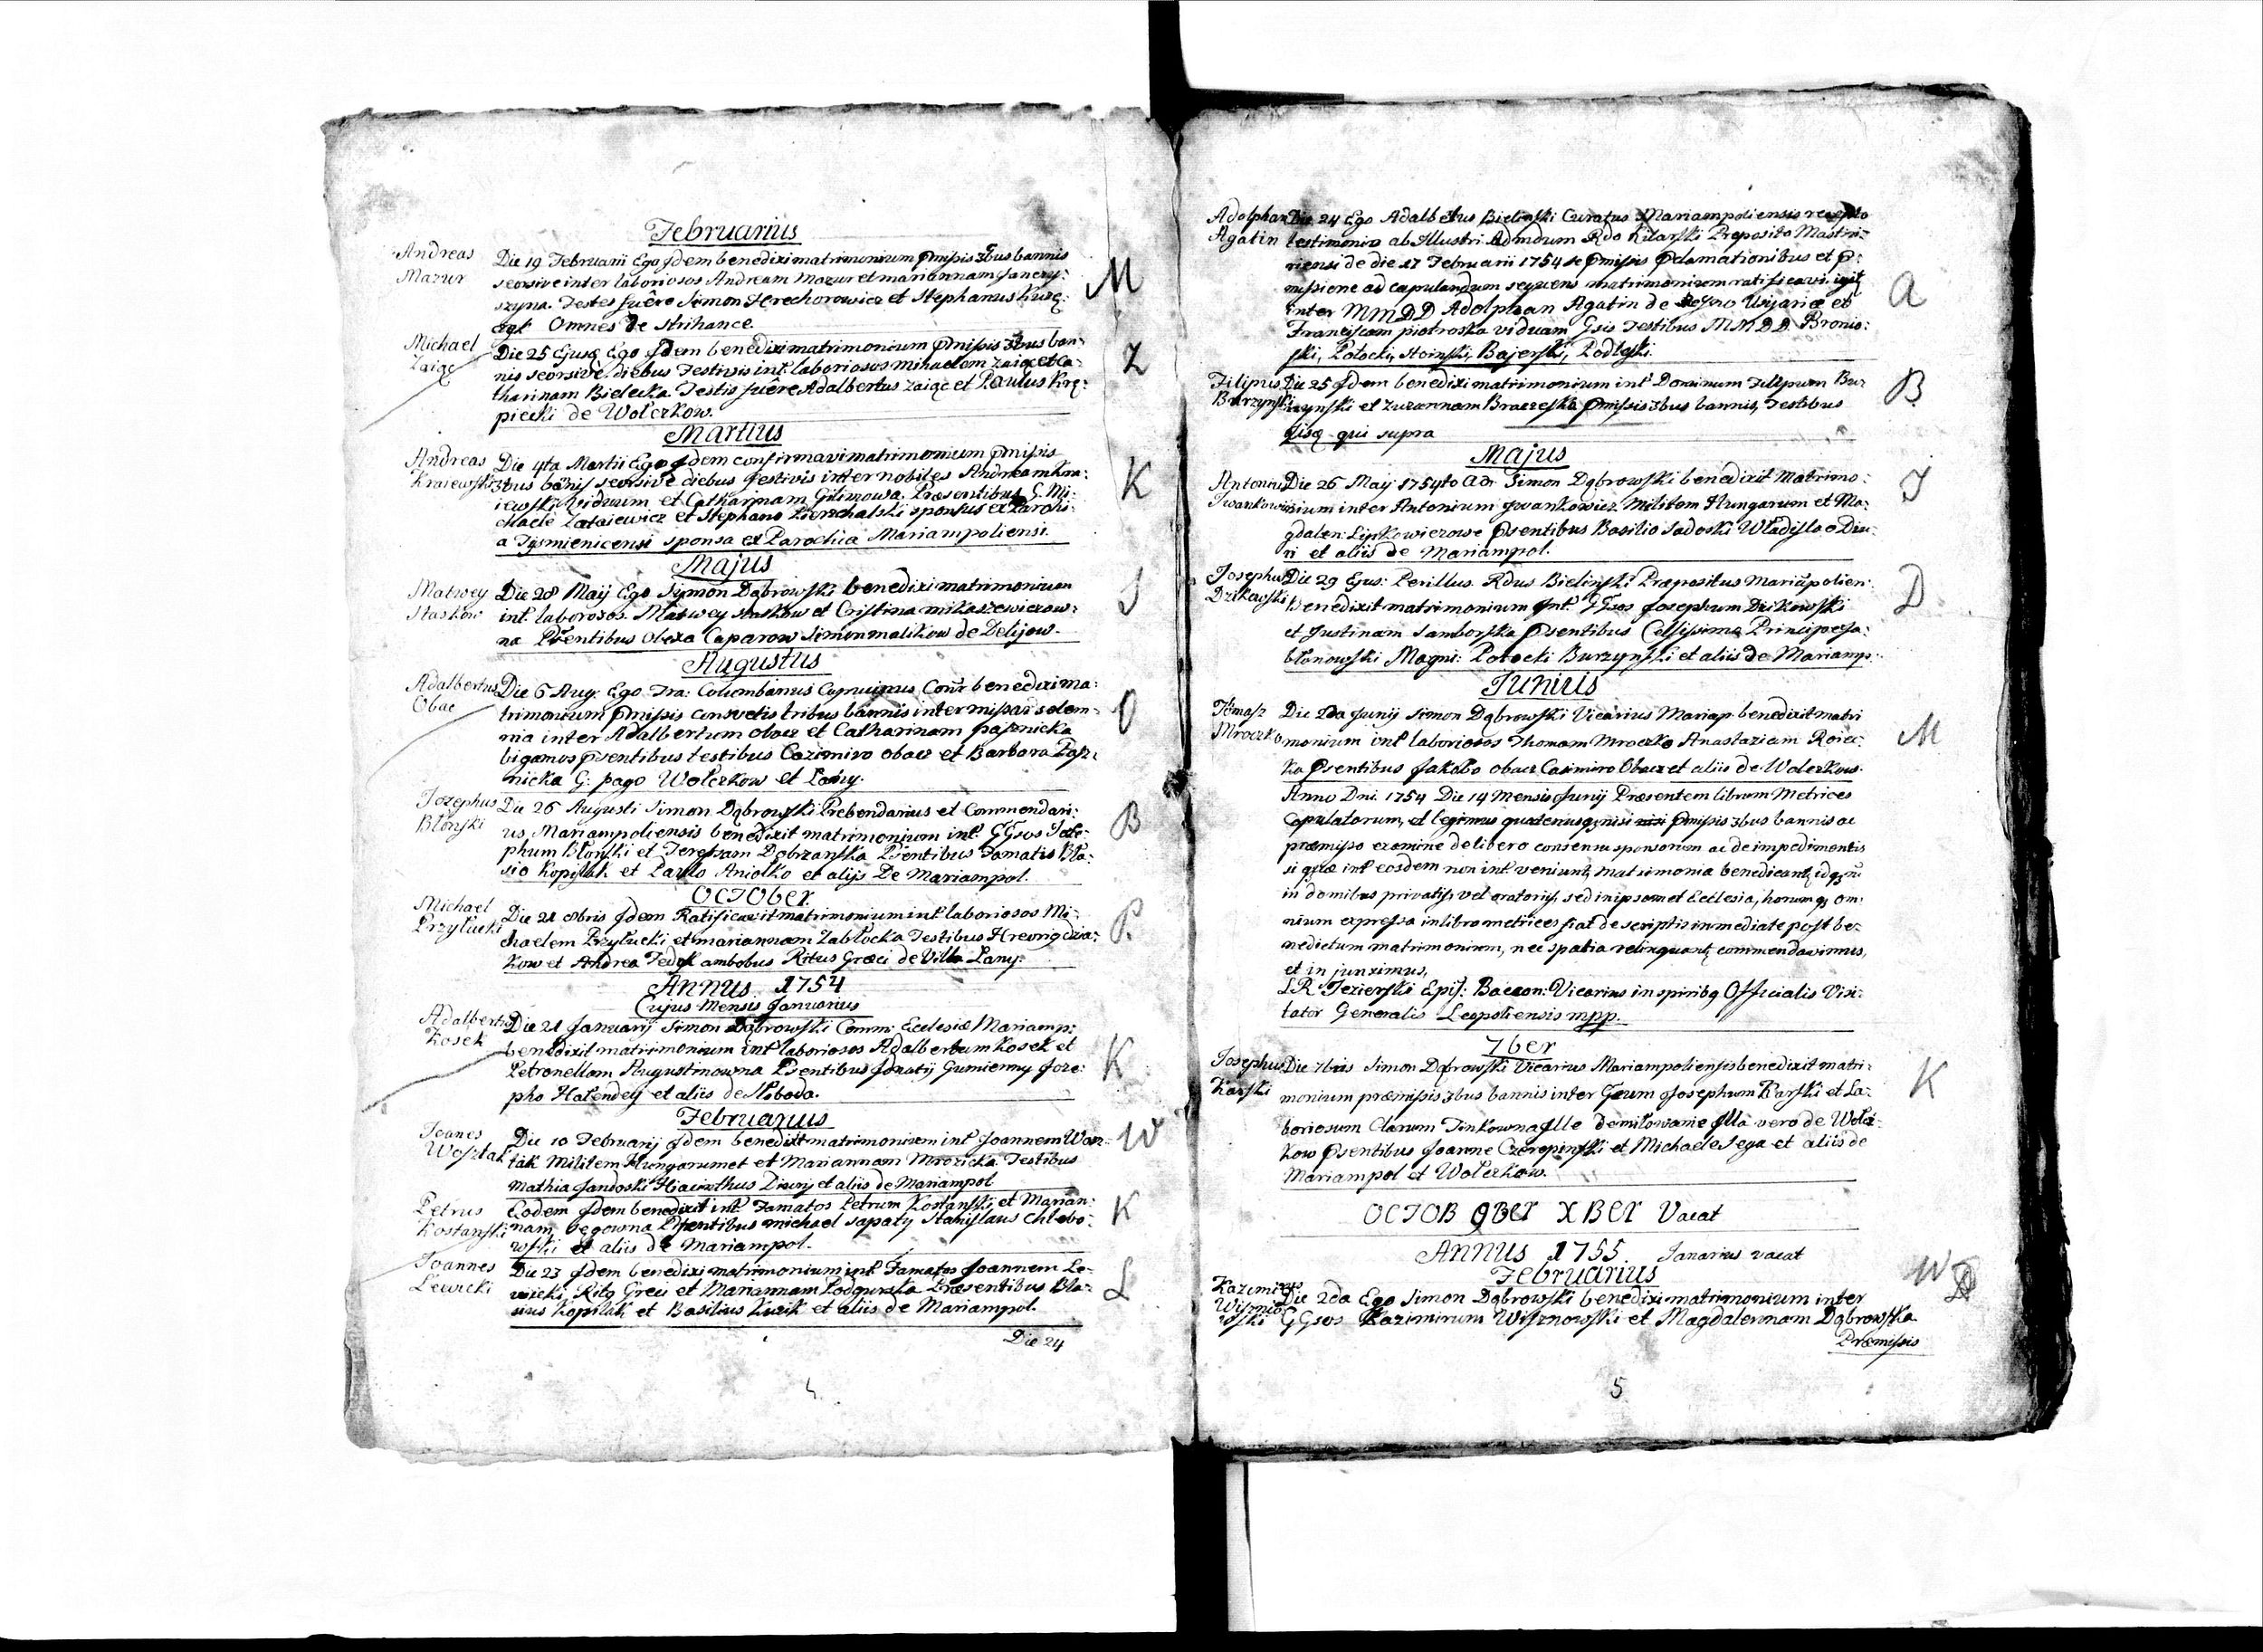 Februarius
Andreas Mazur
Die 19 Februarii Ego Idem benedixi matrimonium pmissis 3bus bannis
seorsive inter laboriosos Andream Mazur et mariannam
szyna. Testes fuêre Simon Hrechorowicz et Stephanus
Omnes de
M
Michael Zaiąc
Die 25 Ejusq Ego Idem benedixi matrimonium pmissis 3bus ban:
nis seorsive diebus Festivis int. laboriosos Mihaelem Zaiąc et Ca:
tharinam Bielecka Testis fuêre Adalbertus Zaiąc et Paulus Krę:
piecki de Wołczkow.
Z
Martius
Andreas Kraiewski
Die 4ta Martii Ego Idem confirmavi matrimonium pmissis
3bus bannis seorsive diebus festivis inter nobiles Andream Kra:
iewski viduum et Catharinam Präsentibus G. Mi:
chaele et Stephano sponsus ex Parochi:
a Tysmienicensi sponsa ex Parochia Mariampoliensi.
K
Majus
Matwey Staskow
Die 28 Maij Ego Symon Dąbrowski benedixi matrimonium
int. laborosos. Matwey staskow et Cristina mikaszewiczow:
na Psentibus Olexa Caparow Simon malikow de Delijow.
S
Augustus
Adalbertus Obac
Die 6 Aug: Ego Fra: Columbanus Capucinus benedixi ma:
trimonium pmissis consvetis tribus bannis inter missar solem:
nia inter Adalbertum obacz et Catharinam pasznicka
bigamos psentibus testibus Cazimiro obacz et Barbara Pasz:
nicka G: pago Wołczkow et Łany.
O
Josephus Błonski
Die 26 Augusti Simon Dąbrowski Prebendarius et Commendari:
us, Mariampoliensis benedixit matrimonium int. GGsos Jose:
phum Błonski et Teressam Dobrzanska Psentibus Famatis Bła:
sio et Pawlo Aniolko et alijs De Mariampol.
B
OCTOBer
Michael Przyłucki
Die 21 8bris Idem Ratificavit matrimonium int. laboriosos Mi:
chaelem Przyłucki et mariannam Zabłocka Testibus
kow et Andrea ambobus Ritus Græci de Villa Łany.
P.
Annus 1754
Cujus Mensis Januarius
Adalbertus Kosek
Die 21 Januarij Simon Dąbrowski Comm: Ecclesiæ Mariamp:
benedixit matrimonium int. laboriosos Adalbertum Kosek et
Petronellam Augustinowna Psentibus Ignatij Gumienny Joze:
pho Hałendey et aliis de Słoboda.
K
Februarius
Joanes Wosztak
Die 10 Februarij Idem benedixit matrimonium int. Joannem Wosz:
tak Militem Hungarum et Mariannam Mrozicka. Testibus
Mathia Jandoski Hiacinthus et aliis de Mariampol
W
Petrus Kostanski
Eodem Idem benedixit int. Famatos Petrum Kostanski et Marian:
nam, Psentibus michael sapaty Stanislaus Chlebo:
wski et aliis de Mariampol.
K
Joannes Lewicki
Die 23 Idem benedixi matrimonium int. Famatos Joannem Le:
wicki, Rito Greci et Mariannam Podgurska Præsentibus Bła:
sius Kopiłak et Basilius Kuzik et aliis de Mariampol.
L
Die 24
Adolphan Agatin
Die 24 Ego Adalbetus Bielinski Curatus Mariampoliensis recepto
testimonio ab Illustri Admdum Rdo Kilarski Preposito
de die 17 Februarii 1754 pmissis pclamationibus et p:
missione ad capulandum seqvens matrimonium ratificavi
inter MMDD Adolphan Agatin de et
Franciscam piotroska viduam Gsis Testibus MMDD. Bronio:
ski, Potocki, Bajerski, Podleski.
A
Filipus Burzynski
Die 25 Idem benedixi matrimonium int. Dominum Filipum Bur:
zynski et Zuzannam pmissis 3bus bannis, Testibus
qui supra
B
Majus
Antonius Iwankowic
Die 26 Maij 1754to Adr Simon Dąbrowski benedixit Matrimo:
nium inter Antonium Iwankowicz Militem Hungarum et Ma:
gdalen: Lipkowiczowe psentibus Basilio Sadoski Władislao
et aliis de Mariampol.
I
Josephus Dzikowski
Die 29 Ejus: Perillus. Rdus Bielinski Præpositus Mariapolien:
Benedixit matrimonium Int. GGsos Josephum Dzikowski
et Justinam Samborska psentibus Celsissimo Principe Ja:
błonowski Magni: Potocki Burzynski et aliis de Mariamp:
D
Junius
Tomasz Mroczko
Die 2da Junij Simon Dąbrowski Vicarius Mariap: benedixit matri
monium int. laboriosos Thomam Mroczko Anastaziam
ka psentibus Jakobo obacz Casimiro Obacz et aliis de Wolczkow.
M
Anno Dni. 1754 Die 14 Mensis Junij Præsentem librum Metrices
Copulatorum, et legimus quatenus nisi pmissis 3bus bannis ac
præmisso examine de libero consensu sponsorum ac de impedimentis
si quæ int. eosdem non int. veniunt, matrimonia benedicant, idq
in domibus privatis, vel oratorijs, sed in ipsamet Ecclesia, horumq om:
nium expressa in libro metrices fiat descriptis immediate post be:
nedictum matrimonium, nec spatia relinquant, commendavimus,
et in junximus,
S.R. Jezierski Epis: Baccon: Vicarius in spiribq Officialis Visi:
tator Generalis Leopoliensis mpp.
7ber
Josephus Karski
Die 7bris Simon Dąbrowski Vicarius Mariampoliensis benedixit matri:
monium præmissis 3bus bannis inter Gsum Josephum Karski et La:
boriosum Claram Jinkowna Ille de miłowanie Illa vero de Wołcz:
kow psentibus Joanne Czerepinski et Michaele Sega et aliis de
Mariampol et Wołczkow.
K
OCTOB 9Ber XBER Vacat
Annus 1755. Janarius vacat
Februarius
Kazimirus Wisznio wski
Die 2da Ego Simon Dąbrowski benedixi matrimonium inter
GGsos Kazimirum Wisznowski et Magdalennam Dąbrowska
W
Præmissis
5